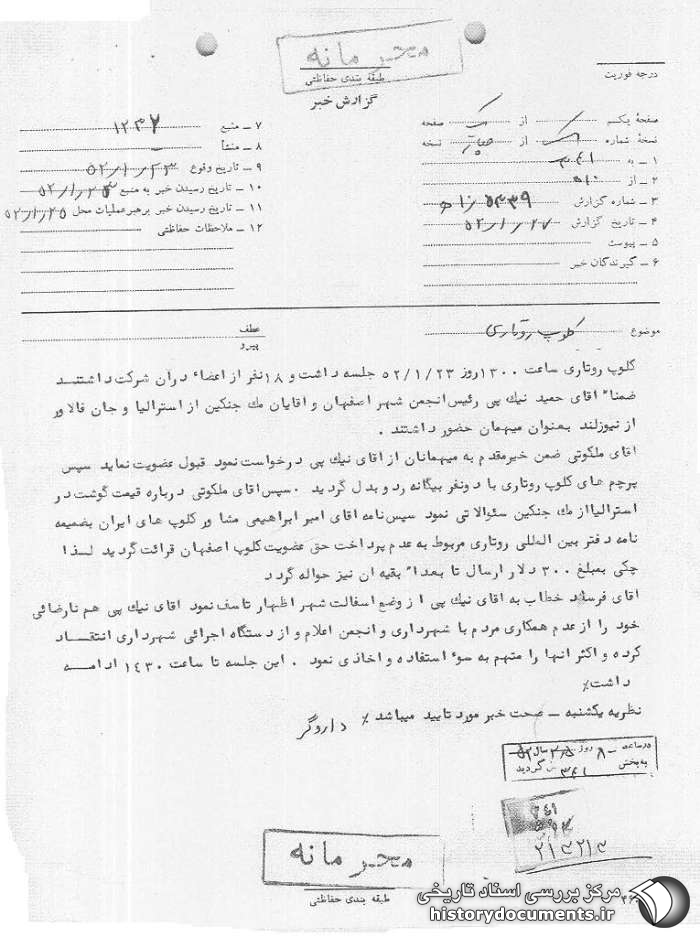 محرمانه
طبقه بندی حفاظتی
گزارش خبر
درجه فوریت
صفحهٔ یکم از صفحه
نسخهٔ شماره از نسخه
۱ ـ به ۳۴۱
۲ ـ از ۱۰ه
۳ ـ شماره گزارش ۵۴۳۹/۱۰ه
۴ ـ تاریخ گزارش ۵۲/۱/۲۷
۵ ـ پیوست
۶ ـ گیرندگان خبر
۷ ـ منبع ۱۲۳۲
۸ ـ منشأ ـ
۹ ـ تاریخ وقوع ۵۲/۱/۲۳
۱۰ ـ تاریخ رسیدن خبر به منبع ۵۲/۱/۲۳
۱۱ ـ تاریخ رسیدن خبر برهبر عملیات محل ۵۲/۱/۲۵
۱۲ ـ ملاحظات حفاظتی
موضوع کلوپ روتاری
عطف
پیرو
کلوپ روتاری ساعت ۱۳۰۰ روز ۵۲/۱/۲۳ جلسه داشت و ۱۸ نفر از اعضاء درآن شرکت داشتند
ضمناً آقای حمید نیک پی رئیس انجمن شهر اصفهان و اقایان مک جنکین از استرالیا و جان فالا ور
از نیوزلند بعنوان میهمان حضور داشتند .
اقای ملکوتی ضمن خیرمقدم به میهمانان از اقای نیک پی درخواست نمود قبول عضویت نماید سپس
پرچم های کلوپ روتاری با دونفر بیگانه رد و بدل گردید . سپس اقای ملکوتی درباره قیمت گوشت در
استرالیا از مک جنکین سئوالاتی نمود سپس نامه اقای امیر ابراهیمی مشاور کلوپ های ایران بضمیمه
نامه دفتر بین المللی روتاری مربوط به عدم پرداخت حق عضویت کلوپ اصفهان قرائت گردید لذا
چکی بمبلغ ۳۰۰ دلار ارسال تا بعداً بقیه ان نیز حواله گردد
اقای فرساد خطاب به اقای نیک پی از وضع اسفالت شهر اظهار تاسف نمود اقای نیک پی هم نارضائی
خود را از عدم همکاری مردم با شهرداری و انجمن اعلام و از دستگاه اجرائی شهرداری انتقاد
کرده و اکثر انها را متهم به سوء استفاده و اخاذی نمود . این جلسه تا ساعت ۱۴۳۰ ادامه
داشت٪
نظریه یکشنبه ـ صحت خبر مورد تایید میباشد٪ داروگر
در ساعت ۸ روز سال ۵۲
به بخش ۳۴۱ گردید
محرمانه
طبقه بندی حفاظتی
مرکز بررسی اسناد تاریخی
historydocuments.ir